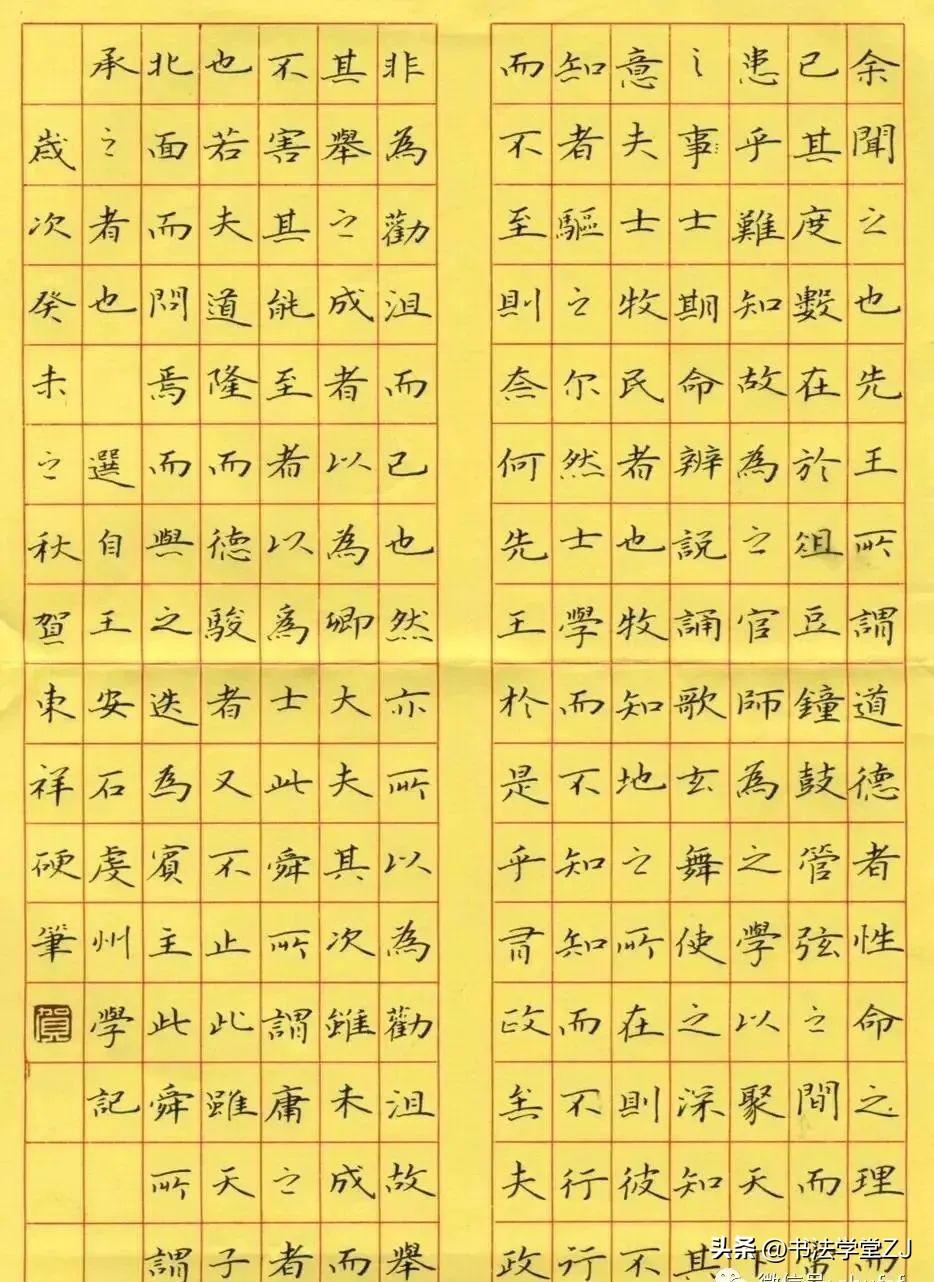 余聞之也先王所謂道德者性命之理而
已其度數在於俎豆鐘鼓管弦之間而常
患乎難知故為之官師為之學以聚天下
之事士期命辨說誦歌玄舞使之深知其
意夫士牧民者也牧知地之所在則彼不
知者驅之尔然士學而不知知而不行行
而不至則奈何先王於是乎有政矣夫政
非為勸沮而已也然亦所以為勸沮故舉
其舉之成者以為卿大夫其次雖未成而
不害其能至者以為士此舜所謂庸之者
也若夫道隆而德駿者又不止此雖天子
北面而問焉而與之迭為賓主此舜所謂
承之者也 選自王安石虔州學記
歲次癸未之秋賀東祥硬筆
賀
头条 @书法学堂ZJ